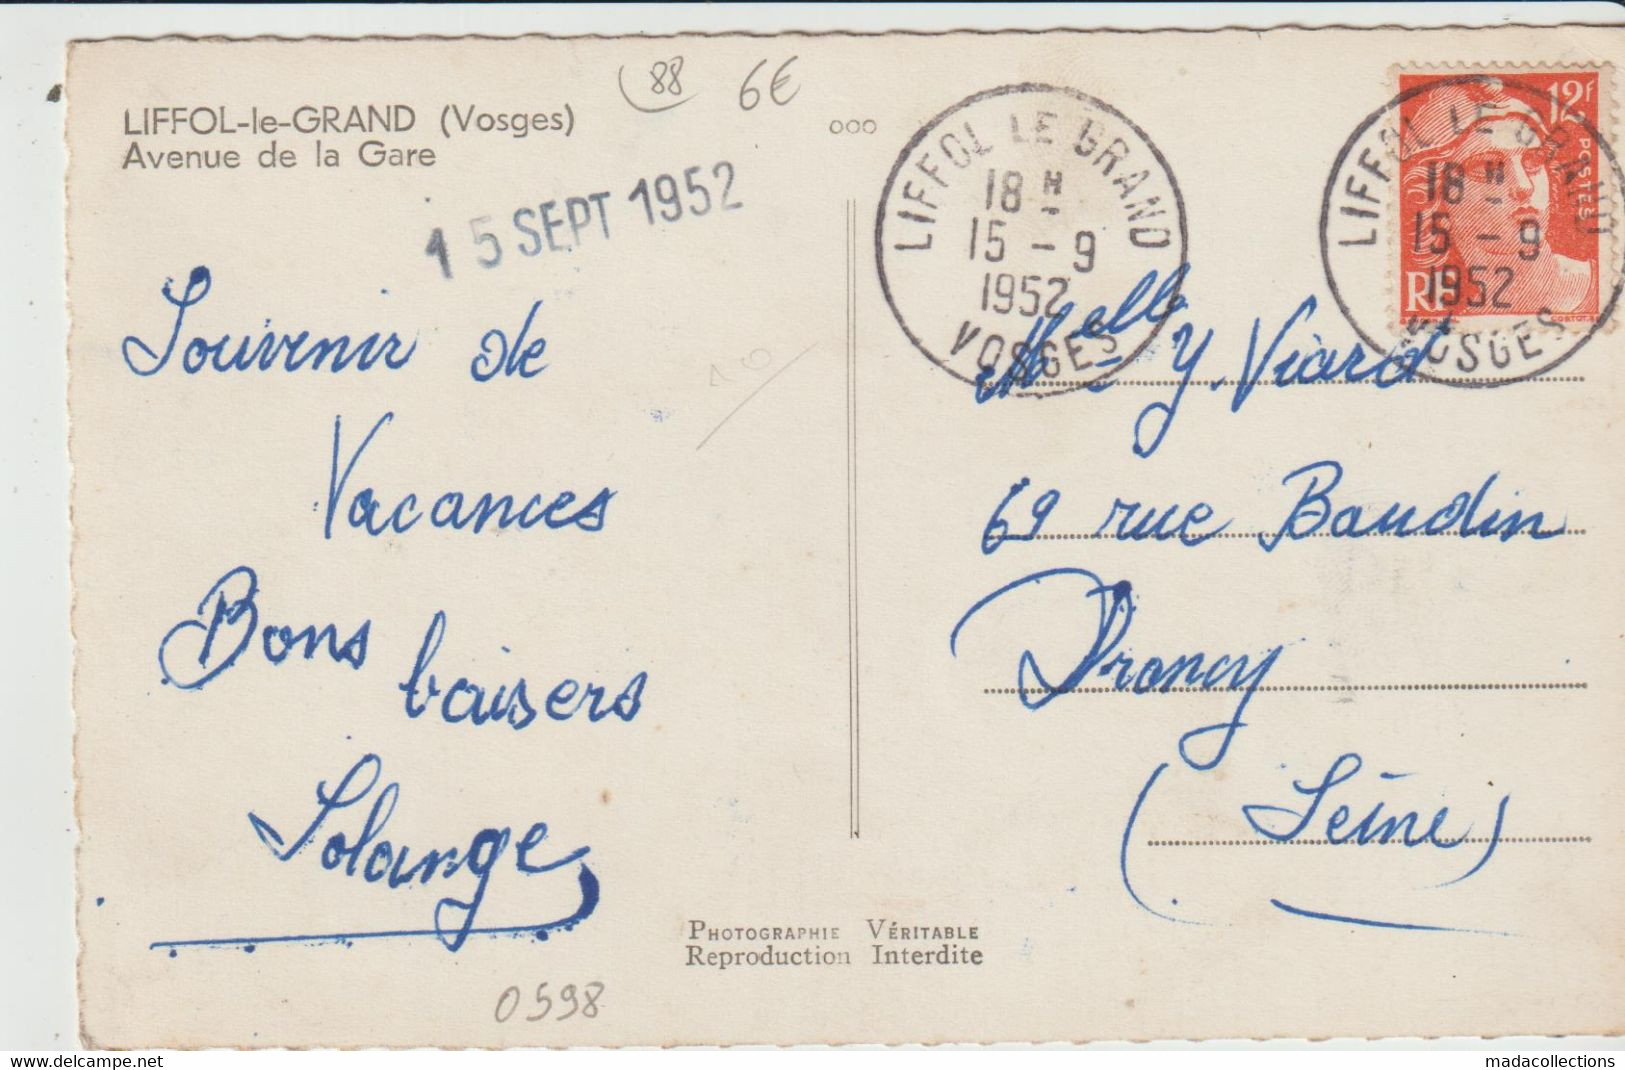 88
6€
LIFFOL-le-GRAND (Vosges)
Avenue de la Gare
15 SEPT 1952
ooo
LIFFOL LE GRAND
18 H
15 - 9
1952
VOSGES
12F
POSTES
RF
LIFFOL LE GRAND
18 H
15 - 9
1952
VOSGES
Souvenir de
Vacances
Bons baisers
Solange
Melle Y. Viard
69 rue Baudin
Drancy
(Seine)
PHOTOGRAPHIE VÉRITABLE
Reproduction Interdite
0598
www.delcampe.net
madacollections